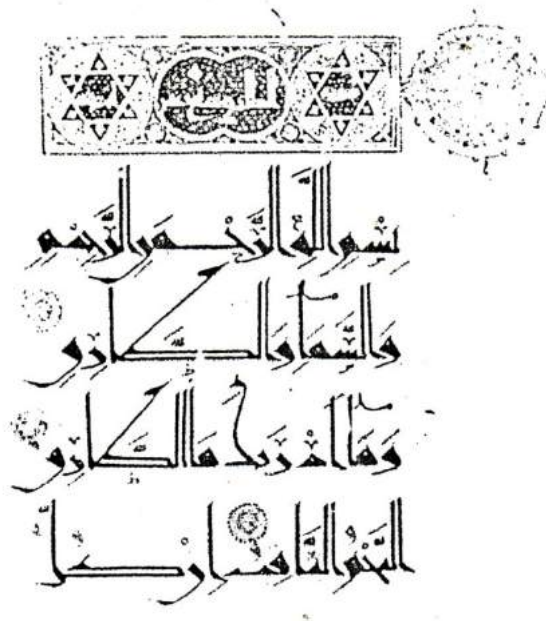 بِسْمِ اللَّهِ الرَّحْمَنِ الرَّحِيمِ
وَالسَّمَاءِ وَالطَّارِقِ
وَمَا أَدْرَىٰكَ مَا الطَّارِقُ
النَّجْمُ الثَّاقِبُ إِنْ كُلُّ